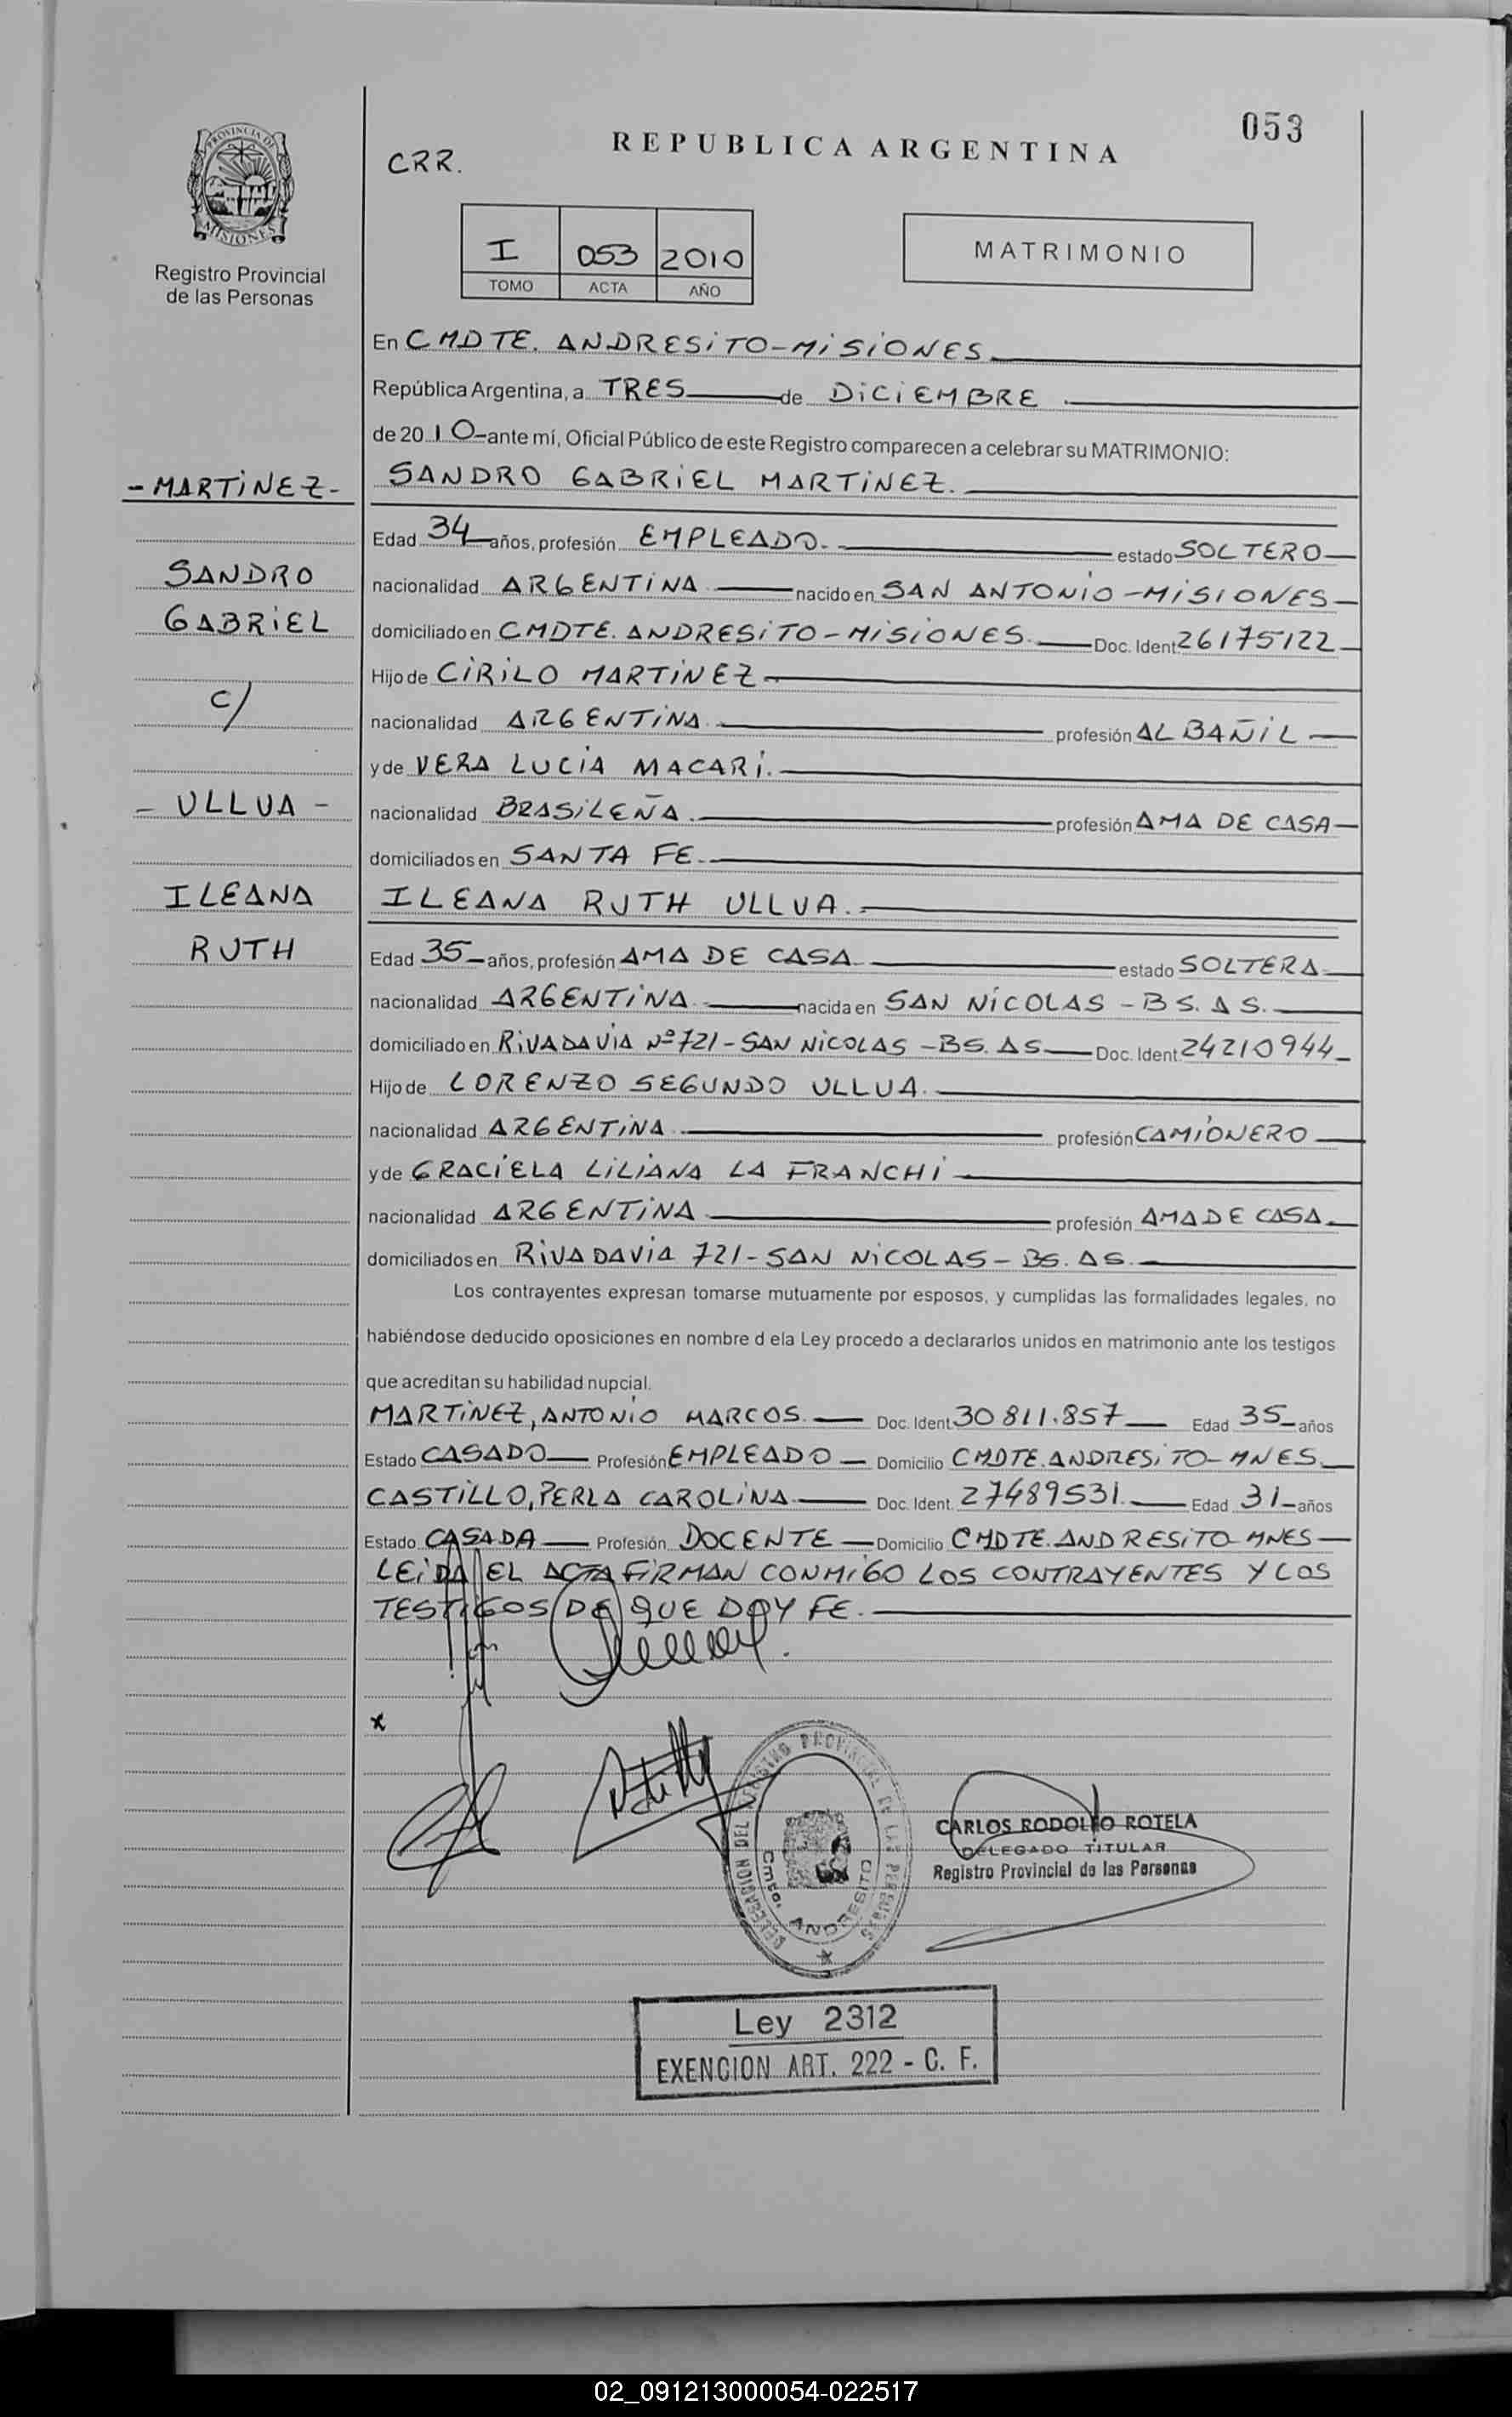 053
REPUBLICA ARGENTINA
CRR.
PROVINCIA DE
MISIONES
Registro Provincial
de las Personas
I 053 2010
TOMO ACTA AÑO
MATRIMONIO
En CMDTE. ANDRESiTO-MiSiONES
República Argentina, a TRES de DiCiEMBRE.
de 2010-ante mí, Oficial Público de este Registro comparecen a celebrar su MATRIMONIO:
-MARTiNEZ-
SANDRO GABRiEL MARTiNEZ.
Edad 34 años, profesión EMPLEADO. estado SOLTERO
SANDRO
nacionalidad ARGENTiNA nacido en SAN ANTONiO-MiSiONES
GABRiEL
domiciliado en CMDTE. ANDRESiTO-MiSiONES. Doc. Ident. 26175122
Hijo de CiRiLO MARTiNEZ
C/
nacionalidad ARGENTiNA profesión ALBAÑiL
y de VERA LUCiA MACARi.
- ULLUA -
nacionalidad BRASiLEÑA. profesión AMA DE CASA
domiciliados en SANTA FE.
ILEANA
ILEANA RUTH ULLUA.
RUTH
Edad 35 años, profesión AMA DE CASA estado SOLTERA
nacionalidad ARGENTiNA nacida en SAN NiCOLAS - BS. AS.
domiciliado en RiVADAViA Nº 721-SAN NiCOLAS-BS. AS Doc. Ident. 24210944
Hijo de LORENZO SEGUNDO ULLUA.
nacionalidad ARGENTiNA profesión CAMiONERO
y de GRACiELA LiLiANA LA FRANCHi
nacionalidad ARGENTiNA profesión AMA DE CASA
domiciliados en RiVADAViA 721-SAN NiCOLAS-BS. AS.
Los contrayentes expresan tomarse mutuamente por esposos, y cumplidas las formalidades legales, no
habiéndose deducido oposiciones en nombre d ela Ley procedo a declararlos unidos en matrimonio ante los testigos
que acreditan su habilidad nupcial.
MARTiNEZ, ANTONiO MARCOS. Doc. Ident 30811.857 Edad 35 años
Estado CASADO Profesión EMPLEADO Domicilio CMDTE. ANDRESiTO-MNES
CASTiLLO, PERLA CAROLiNA Doc. Ident. 27489531. Edad 31 años
Estado CASADA Profesión DOCENTE Domicilio CMDTE. ANDRESiTO-MNES
LEiDA EL ACTA FiRMAN CONMiGO LOS CONTRAYENTES Y LOS
TESTiGOS DE QUE DOY FE.
x
DELEGACION DEL REGISTRO PROVINCIAL DE LAS PERSONAS
Cmte. ANDRESITO
CARLOS RODOLFO ROTELA
DELEGADO TITULAR
Registro Provincial de las Personas
Ley 2312
EXENCION ART. 222 - C. F.
02_091213000054-022517